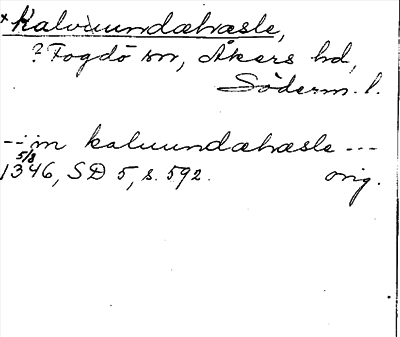 *Kalvuundæhæsle,
? Fogdö sn, Åkers hd,
Söderm. l.
--- in kaluundæhæsle ---
5/8
1346, SD 5, s. 592. orig.